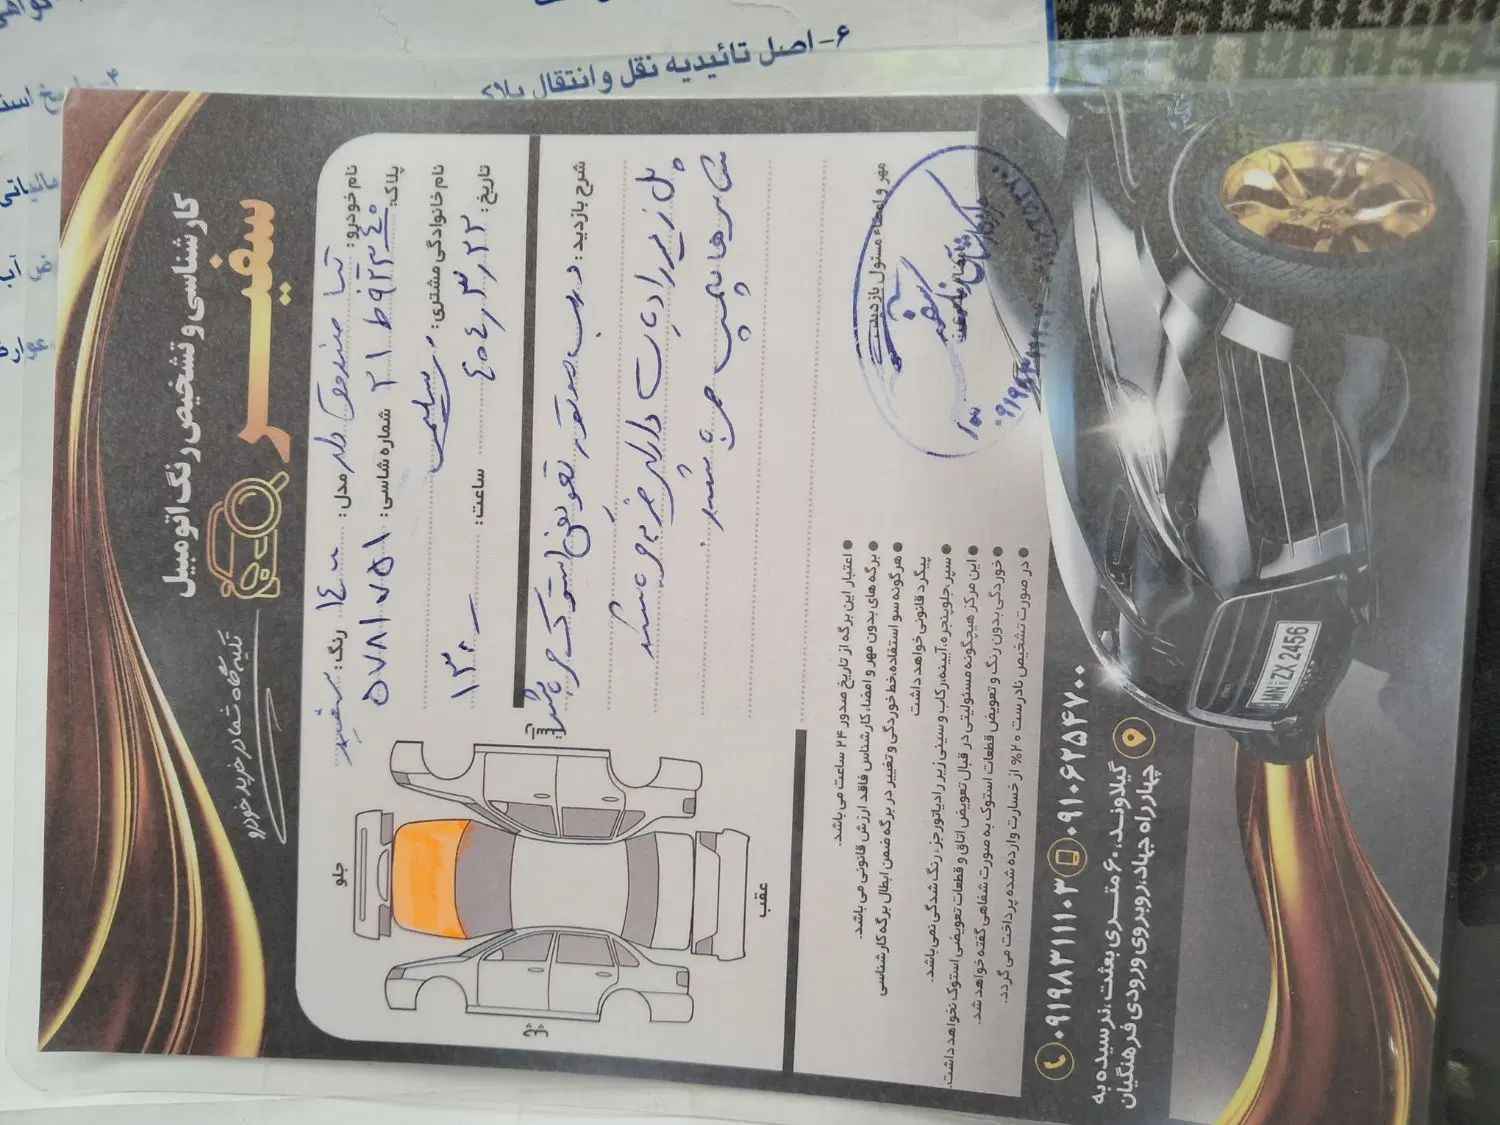 ۶- اصل تائیدیه نقل و انتقال پلاک
کارشناسی و تشخیص رنگ اتومبیل
سفیر
تکیه‌گاه شما در خرید خودرو
نام خودرو: تیبا صندوقدار مدل: ۱۴۰۰ رنگ: سفید
پلاک: ۲۱ ط ۹۲۳۴۰ شماره شاسی: ۵۷۸۱۷۵۱
نام خانوادگی مشتری: سلیمی
تاریخ: ۴۰۴/۳/۲۲ ساعت: ۱۳۰۰
شرح بازدید: درب موتور تعویض استوک می باشد
پل زیر رادیات دارای ضربه می باشد
شاسی ها پلمپ می باشد.
جلو
عقب
مهر و امضاء مسئول بازدید:
سفیر
● اعتبار این برگه از تاریخ صدور ۲۴ ساعت می باشد.
● برگه های بدون مهر و امضاء کارشناس فاقد ارزش قانونی می باشد.
● هرگونه سو استفاده، خط خوردگی و تغییر در برگه ضمن ابطال برگه کارشناسی
پیگرد قانونی خواهد داشت
● سپر جلو، پنجره، آیینه، رکاب و سینی زیر رادیاتور جزء رنگ شدگی نمی باشد.
● این مرکز هیچگونه مسئولیتی در قبال تعویض اتاق و قطعات تعویضی استوک نخواهد داشت.
● خوردگی بدون رنگ و تعویض قطعات استوک به صورت شفاهی گفته خواهد شد.
● در صورت تشخیص نادرست ۲۰% از خسارت وارده شده پرداخت می گردد.
۰۹۱۹۸۳۱۱۱۰۳ ۰۹۱۰۶۲۵۴۷۰۰
گیلاوند، ۶۰ متری بعثت، نرسیده به
چهارراه جهاد، روبروی ورودی فرهنگیان
ZX 2456